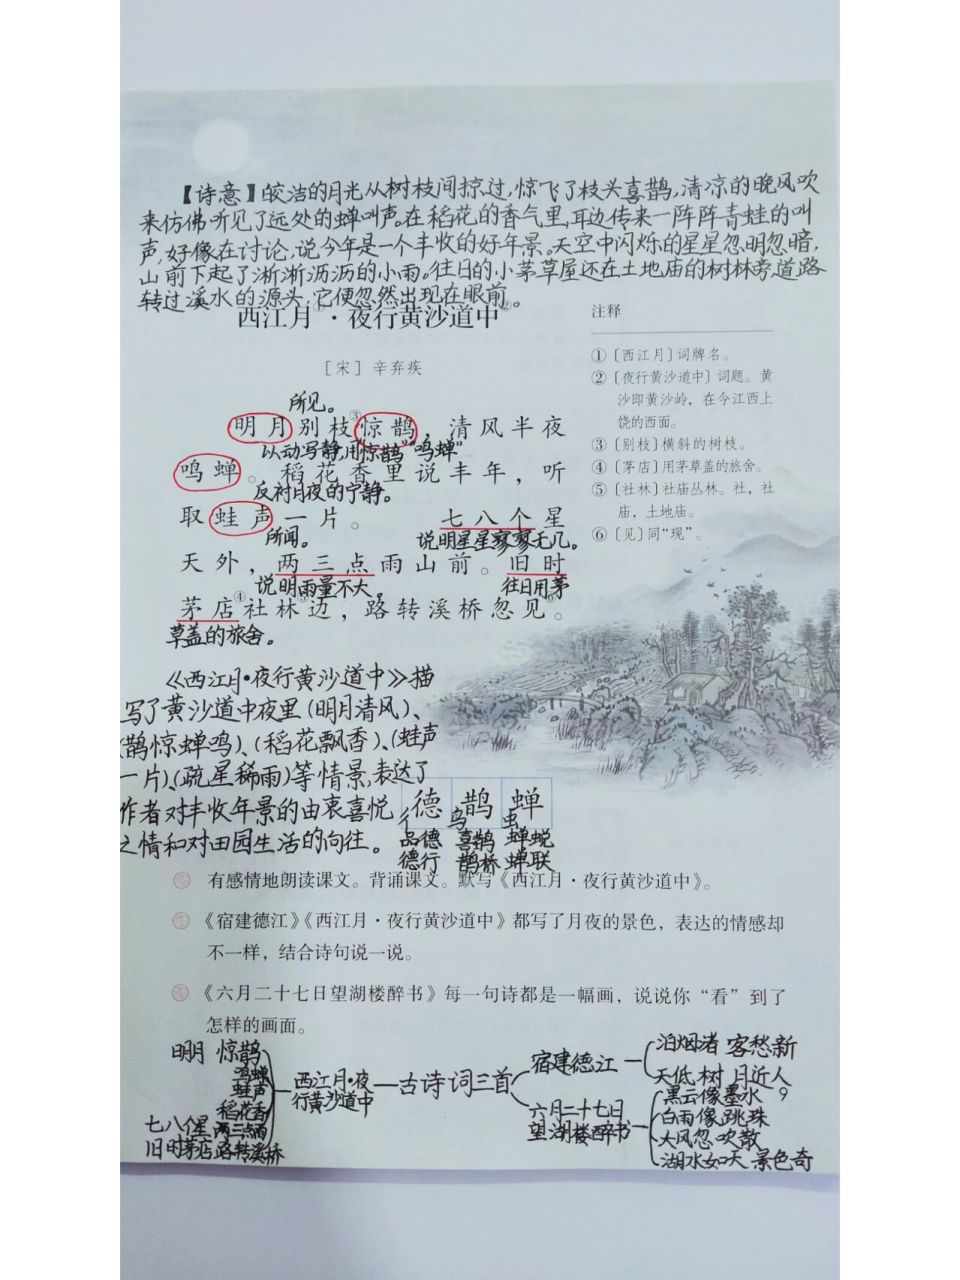 【诗意】皎洁的月光从树枝间掠过,惊飞了枝头喜鹊,清凉的晚风吹
来仿佛听见了远处的蝉叫声。在稻花的香气里,耳边传来一阵阵青蛙的叫
声,好像在讨论,说今年是一个丰收的好年景。天空中闪烁的星星忽明忽暗,
山前下起了淅淅沥沥的小雨。往日的小茅草屋还在土地庙的树林旁,道路
转过溪水的源头,它便忽然出现在眼前。
西江月①·夜行黄沙道中②
[宋] 辛弃疾
所见。
明月别枝③惊鹊,清风半夜
以动写静,用“惊鹊”“鸣蝉”
鸣蝉。稻花香里说丰年,听
反衬月夜的宁静。
取蛙声一片。 七八个星
所闻。 说明星星寥寥无几。
天外,两三点雨山前。旧时
说明雨量不大, 往日用茅
茅店④社林⑤边,路转溪桥忽见⑥。
草盖的旅舍。
注释
① 〔西江月〕词牌名。
② 〔夜行黄沙道中〕词题。黄
沙即黄沙岭,在今江西上
饶的西面。
③ 〔别枝〕横斜的树枝。
④ 〔茅店〕用茅草盖的旅舍。
⑤ 〔社林〕社庙丛林。社,社
庙,土地庙。
⑥ 〔见〕同“现”。
《西江月·夜行黄沙道中》描
写了黄沙道中夜里(明月清风)、
(鹊惊蝉鸣)、(稻花飘香)、(蛙声
一片)、(疏星稀雨)等情景,表达了
作者对丰收年景的由衷喜悦
之情和对田园生活的向往。
德 鹊 蝉
彳 鸟 虫
品德 喜鹊 蝉蜕
德行 鹊桥 蝉联
有感情地朗读课文。背诵课文。默写《西江月·夜行黄沙道中》。
《宿建德江》《西江月·夜行黄沙道中》都写了月夜的景色,表达的情感却
不一样,结合诗句说一说。
《六月二十七日望湖楼醉书》每一句诗都是一幅画,说说你“看”到了
怎样的画面。
明月 惊鹊
鸣蝉
蛙声
稻花香
七八个星 两三点雨
旧时茅店 路转溪桥
西江月·夜
行黄沙道中
古诗词三首
宿建德江
泊烟渚 客愁新
天低树 月近人
六月二十七日
望湖楼醉书
黑云像墨水
白雨像跳珠
大风忽吹散
湖水如天 景色奇